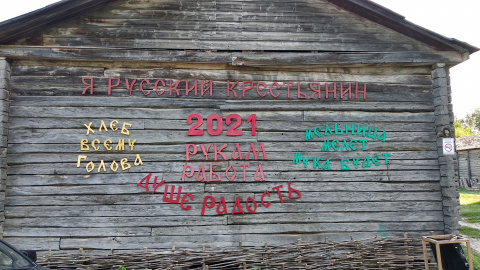 Я РУССКИЙ КРЕСТЬЯНИН
ХЛЕБ
ВСЕМУ
ГОЛОВА
2021
РУКАМ
РАБОТА
ДУШЕ РАДОСТЬ
МЕЛЬНИЦА
МЕЛЕТ
МУКА БУДЕТ